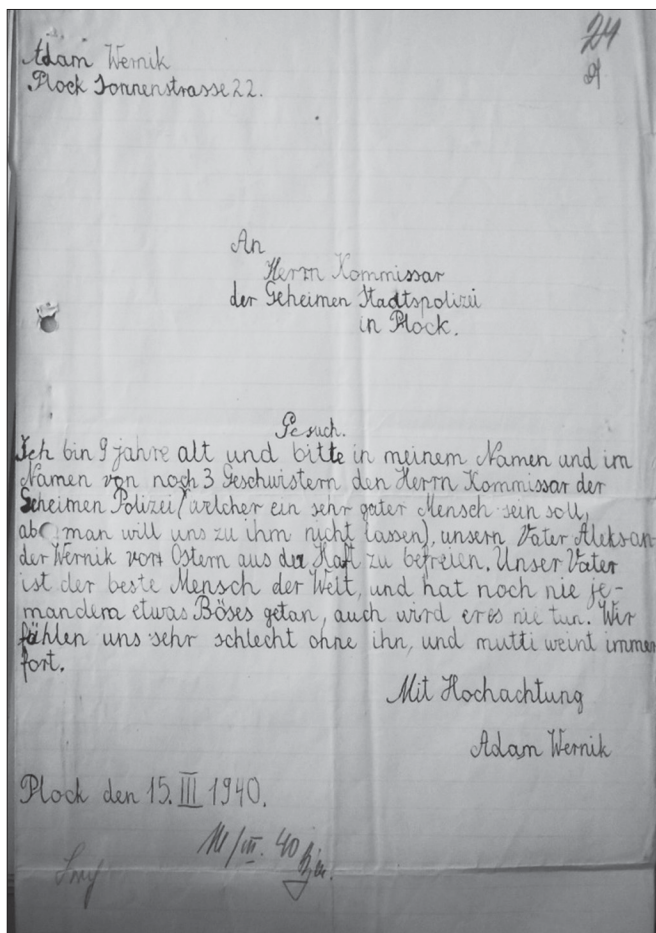 24
Adam Wernik
Plock Sonnenstrasse 22.
An
Herrn Kommissar
der Geheimen Stadtspolizei
in Plock.
Gesuch.
Ich bin 9 jahre alt und bitte in meinem Namen und im
Namen von noch 3 Geschwistern den Herrn Kommissar der
Geheimen Polizei (welcher ein sehr guter Mensch sein soll,
abe man will uns zu ihm nicht lassen), unsern Vater Aleksan
der Wernik vor Ostern aus der Haft zu befreien. Unser Vater
ist der beste Mensch der Welt, und hat noch nie je-
mandem etwas Böses getan, auch wird er es nie tun. Wir
fühlen uns sehr schlecht ohne ihn, und mutti weint immer
fort.
Mit Hochachtung
Adam Wernik
Plock den 15. III 1940.
/III. 40